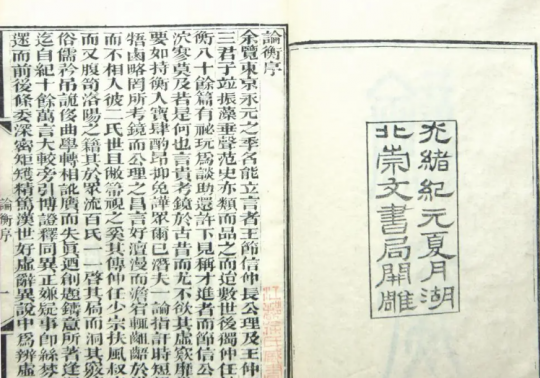 光緒紀元夏月湖
北崇文書局開雕
論衡序
余覽東京永元之季名能立言者王節信仲長公理及王仲
三君子並振藻垂聲范史亦類而品之而迨數世後獨仲任
衡八十餘篇有祕玩爲談助還許下見稱才進者而節信公
泬寥莫及若是何也言貴考鏡於古昔而尤不欲其虛窾靡
要如持衡人寶肆酌昂抑免譁衆爾已潛夫一論指訐時短
牾鹵略罔所考鏡而公理之昌言好澶漫而澹宕輒齟齬於
而不相人彼二氏世且敝帚視之奚其傳仲任少宗扶風叔
而又腹笥洛陽之籍其於衆流百氏一一啓其扃而洞其竅
俗儒矜吊詭侈曲學轉相訛贗而失眞迺創題鑄意所著逢
迄自紀十餘萬言大較旁引博證釋同異正嫌疑事卽絲棼
遝而前後條委深密矩矱精篤漢世好虛辭異說中爲辨虛
論衡序
一